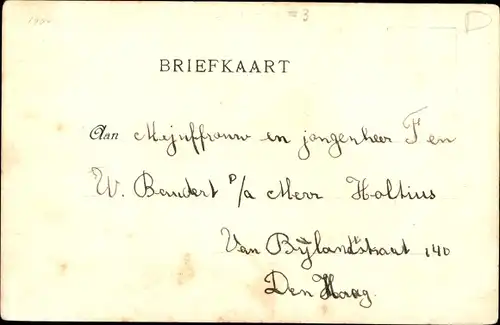 = 3
D
BRIEFKAART
Aan Mejuffrouw en jongenheer F en
W. Bemdert p/a Merr Holtius
Van Bÿlandtstraat 140
Den Haag.